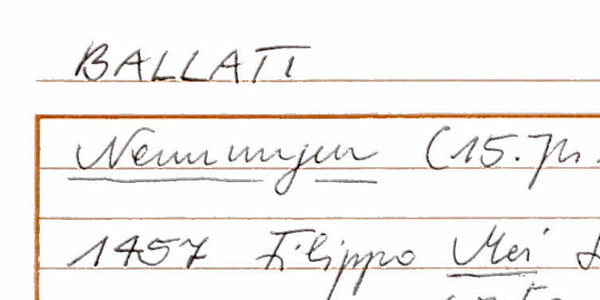 BALLATI
Nennungen (15. Jh.
1457 Filippo Mei